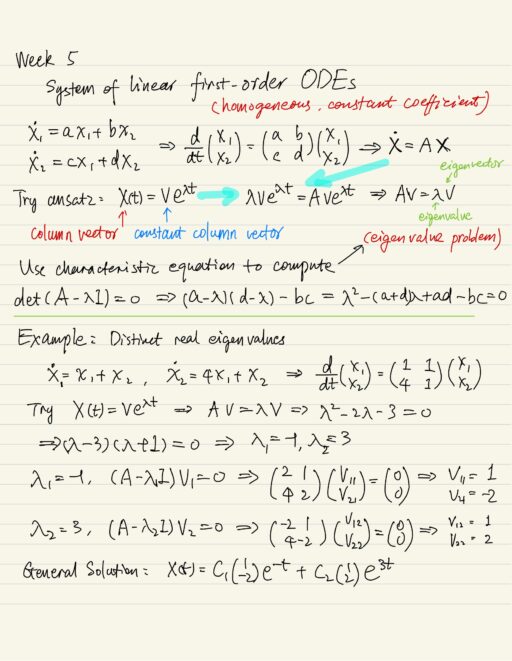 Week 5
System of linear first-order ODEs
(homogeneous, constant coefficient)
ẋ₁ = ax₁ + bx₂
ẋ₂ = cx₁ + dx₂
⇒ d/dt (x₁ x₂) = (a b c d)(x₁ x₂) ⇒ Ẋ = AX
eigenvector
Try ansatz: X(t) = Ve^λt → λVe^λt = AVe^λt ⇒ AV = λV
eigenvalue
column vector constant column vector (eigenvalue problem)
Use characteristic equation to compute
det(A-λI) = 0 ⇒ (a-λ)(d-λ) - bc = λ² - (a+d)λ + ad - bc = 0
Example: Distinct real eigenvalues
ẋ₁ = x₁ + x₂, ẋ₂ = 4x₁ + x₂ ⇒ d/dt (x₁ x₂) = (1 1 4 1)(x₁ x₂)
Try X(t) = Ve^λt ⇒ AV = λV ⇒ λ² - 2λ - 3 = 0
⇒ (λ-3)(λ+1) = 0 ⇒ λ₁ = -1, λ₂ = 3
λ₁ = -1, (A-λI)V₁ = 0 ⇒ (2 1 4 2)(V₁₁ V₂₁) = (0 0) ⇒ V₁₁ = 1 V₄ = -2
λ₂ = 3, (A-λ₂I)V₂ = 0 ⇒ (-2 1 4 -2)(V₁₂ V₂₂) = (0 0) ⇒ V₁₂ = 1 V₂₂ = 2
General Solution: X(t) = C₁(1 -2)e^-t + C₂(1 2)e^3t